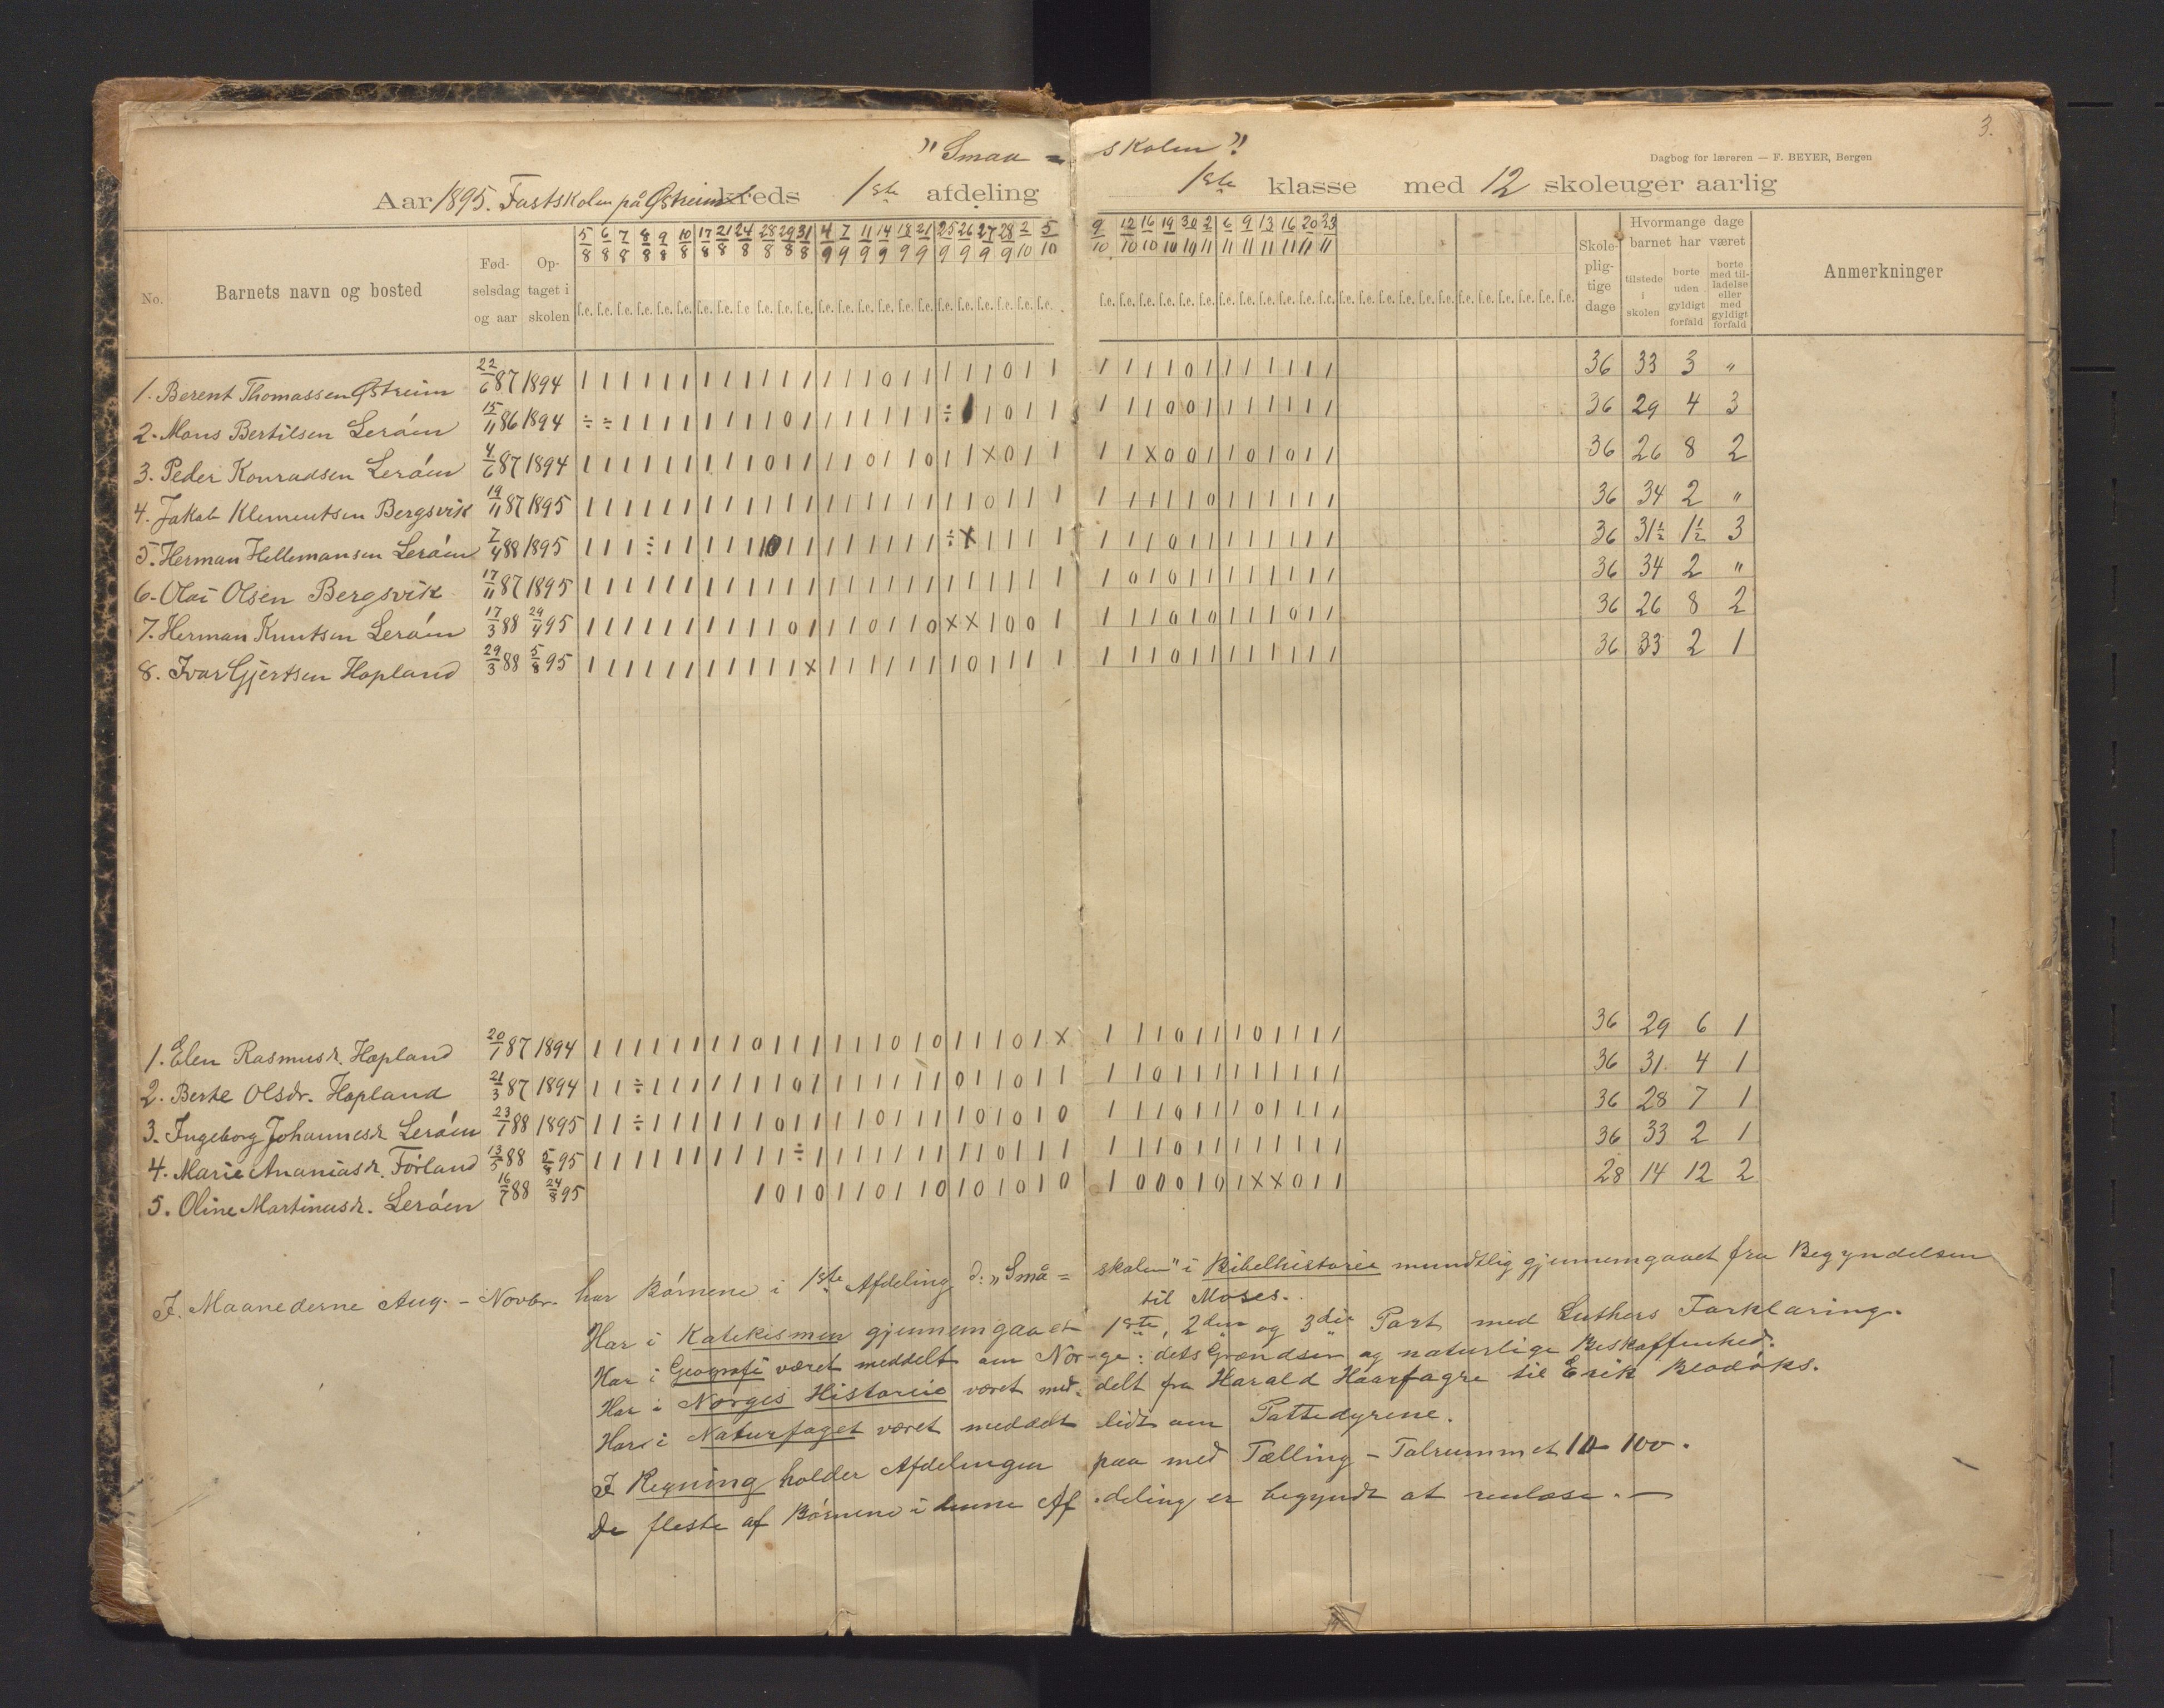 3.
"Smaa = skolen"
Dagbog for læreren — F. BEYER, Bergen
Aar 1895. Fastskolen på Østreim kreds 1ste afdeling 1ste klasse med 12 skoleuger aarlig
No. Barnets navn og bosted Fødselsdag og aar Optaget i skolen
5/8 6/8 7/8 8/8 9/8 10/8 17/8 21/8 24/8 28/8 29/8 31/8 4/9 7/9 11/9 14/9 18/9 21/9 25/9 26/9 27/9 28/9 2/10 5/10 9/10 12/10 16/10 19/10 30/10 2/11 6/11 9/11 13/11 16/11 20/11 23/11
f.e. f.e. f.e. f.e. f.e. f.e. f.e. f.e. f.e. f.e. f.e. f.e. f.e. f.e. f.e. f.e. f.e. f.e. f.e. f.e. f.e. f.e. f.e. f.e.
Skolepligtige dage Hvormange dage barnet har været tilstede i skolen borte uden gyldigt forfald borte med tilladelse eller med gyldigt forfald Anmerkninger
1. Berent Thomassen Østreim 22/6 87 1894 1 1 1 1 1 1 1 1 1 1 1 1 1 1 1 0 1 1 1 1 1 0 1 1 1 1 1 1 0 1 1 1 1 1 1 1 36 33 3 "
2. Mons Bertilsen Lerøen 15/11 86 1894 ÷ ÷ 1 1 1 1 1 1 1 1 0 1 1 1 1 1 1 1 ÷ 1 1 0 1 1 1 1 1 0 0 1 1 1 1 1 1 1 36 29 4 3
3. Peder Konradsen Lerøen 4/6 87 1894 1 1 1 1 1 1 1 1 1 0 1 1 1 1 0 1 1 0 1 1 × 0 1 1 1 1 × 0 0 1 1 0 1 0 1 1 36 26 8 2
4. Jakob Klementsen Bergsvik 19/11 87 1895 1 1 1 1 1 1 1 1 1 1 1 1 1 1 1 1 1 1 1 1 0 1 1 1 1 1 1 1 1 0 1 1 1 1 1 1 36 34 2 "
5. Herman Hellemansen Lerøen 7/4 88 1895 1 1 1 ÷ 1 1 1 1 1 10 1 1 1 1 1 1 1 1 ÷ × 1 1 1 1 1 1 1 0 1 1 1 1 1 1 1 1 36 31½ 1½ 3
6. Olai Olsen Bergsvik 17/11 87 1895 1 1 1 1 1 1 1 1 1 1 1 1 1 1 1 1 1 1 1 1 1 1 1 1 1 0 1 0 1 1 1 1 1 1 1 1 36 34 2 "
7. Herman Knutsen Lerøen 17/3 88 29/4 95 1 1 1 1 1 1 1 1 1 1 0 1 1 1 0 1 1 0 × × 1 0 0 1 1 1 1 0 1 0 1 1 1 0 1 1 36 26 8 2
8. Ivar Gjertsen Hopland 29/3 88 5/8 95 1 1 1 1 1 1 1 1 1 1 1 × 1 1 1 1 1 1 1 0 1 1 1 1 1 1 1 0 1 1 1 1 1 1 1 1 36 33 2 1
1. Elen Rasmusdr. Hopland 20/1 87 1894 1 1 1 1 1 1 1 1 0 1 1 1 1 1 1 0 1 0 1 1 1 0 1 × 1 1 1 0 1 1 1 0 1 1 1 1 36 29 6 1
2. Berte Olsdr. Hopland 21/3 87 1894 1 1 ÷ 1 1 1 1 1 1 1 0 1 1 1 1 1 1 1 0 1 1 0 1 1 1 1 0 1 1 1 1 1 1 1 1 1 36 31. 4 1
3. Ingeborg Johannesdr. Lerøen 23/1 88 1895 1 1 ÷ 1 1 1 1 1 1 0 1 1 1 1 0 1 1 1 1 0 1 0 1 0 1 1 1 0 1 1 1 0 1 1 1 1 36 28 7 1
4. Marie Ananiasdr. Førland 13/5 88 5/8 95 1 1 1 1 1 1 1 1 1 1 ÷ 1 1 1 1 1 1 1 1 1 0 1 1 1 1 1 1 0 1 1 1 1 1 1 1 1 36 33 2 1
5. Oline Martinusdr. Lerøen 16/7 88 24/8 95 1 0 1 0 1 1 0 1 1 0 1 0 1 0 1 0 1 0 0 0 1 0 1 × × 0 1 1 28 14 12 2
I Maanederne Aug. – Novbr. har Børnene i 1ste Afdeling ɔ: „Små = skolen" i Bibelhistorie mundtlig gjennemgaaet fra Begyndelsen
til Moses.
Har i Katekismen gjennemgaaet 1ste, 2den og 3die Part med Luthers Forklaring.
Har i Geografi været meddelt om Nor-ge: dets Grændser og naturlige Beskaffenhed.
Har i Norges Historie været med-delt fra Harald Haarfagre til Erik Blodøks.
Har i Naturfaget været meddelt lidt om Pattedyrene.
I Regning holder Afdelingen paa med Tælling – Talrummet 10–100.
De fleste af Børnene i denne Af-deling er begyndt at renlæse. —